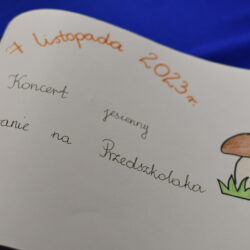 7 listopada 2023 r.
Koncert jesienny
na Przedszkolaka